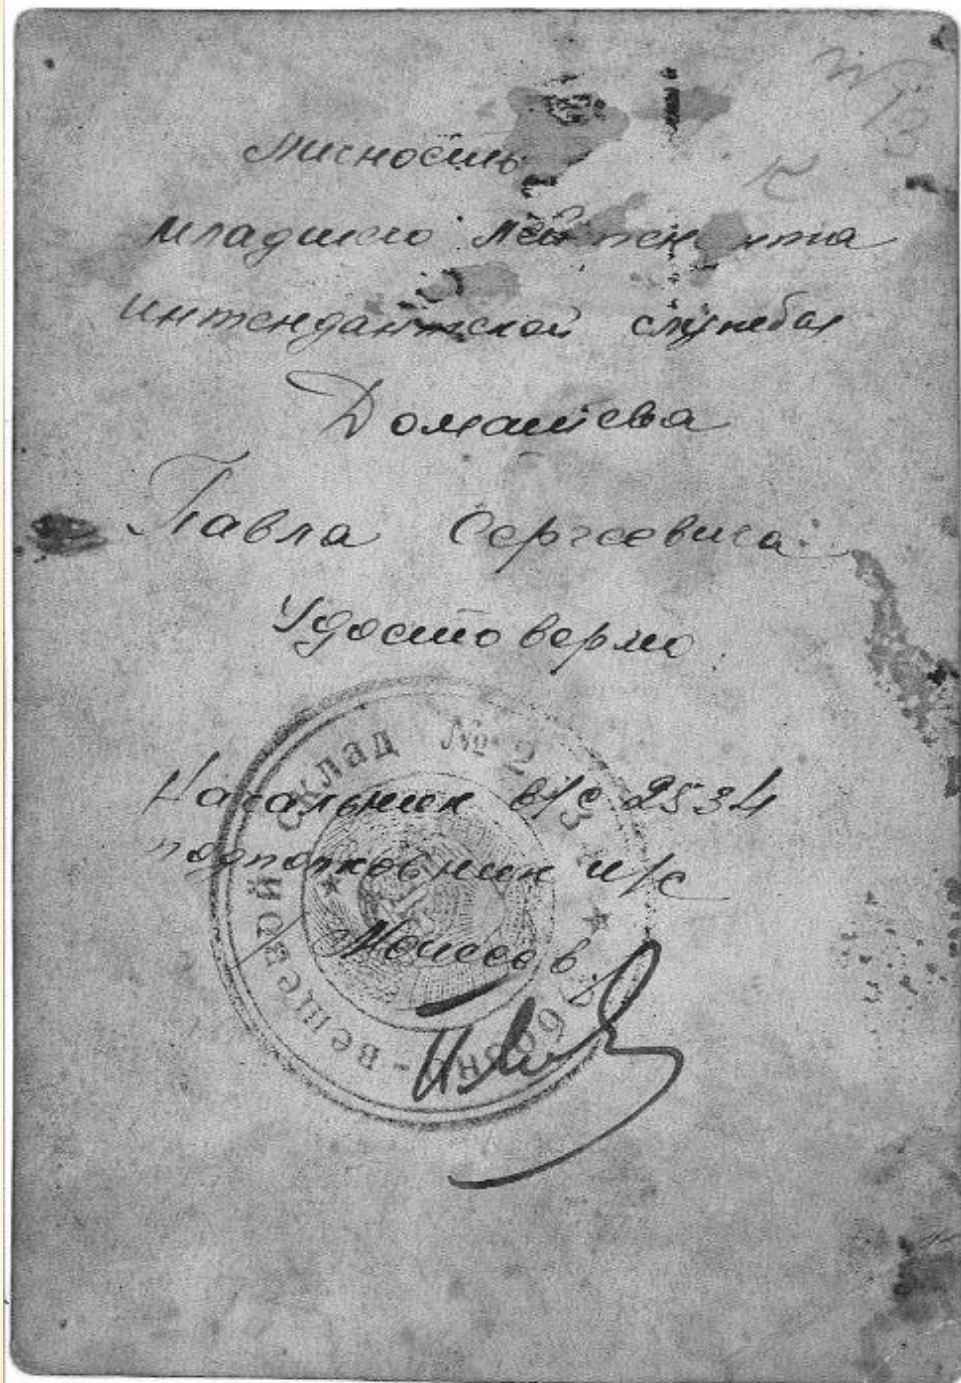 Личность
младшего лейтенанта
интендантской службы
Домашева
Павла Сергеевича
Удостоверяю.
Начальник в/с 2534
подполковник и/с
Моисеев
Вещевой склад № 2